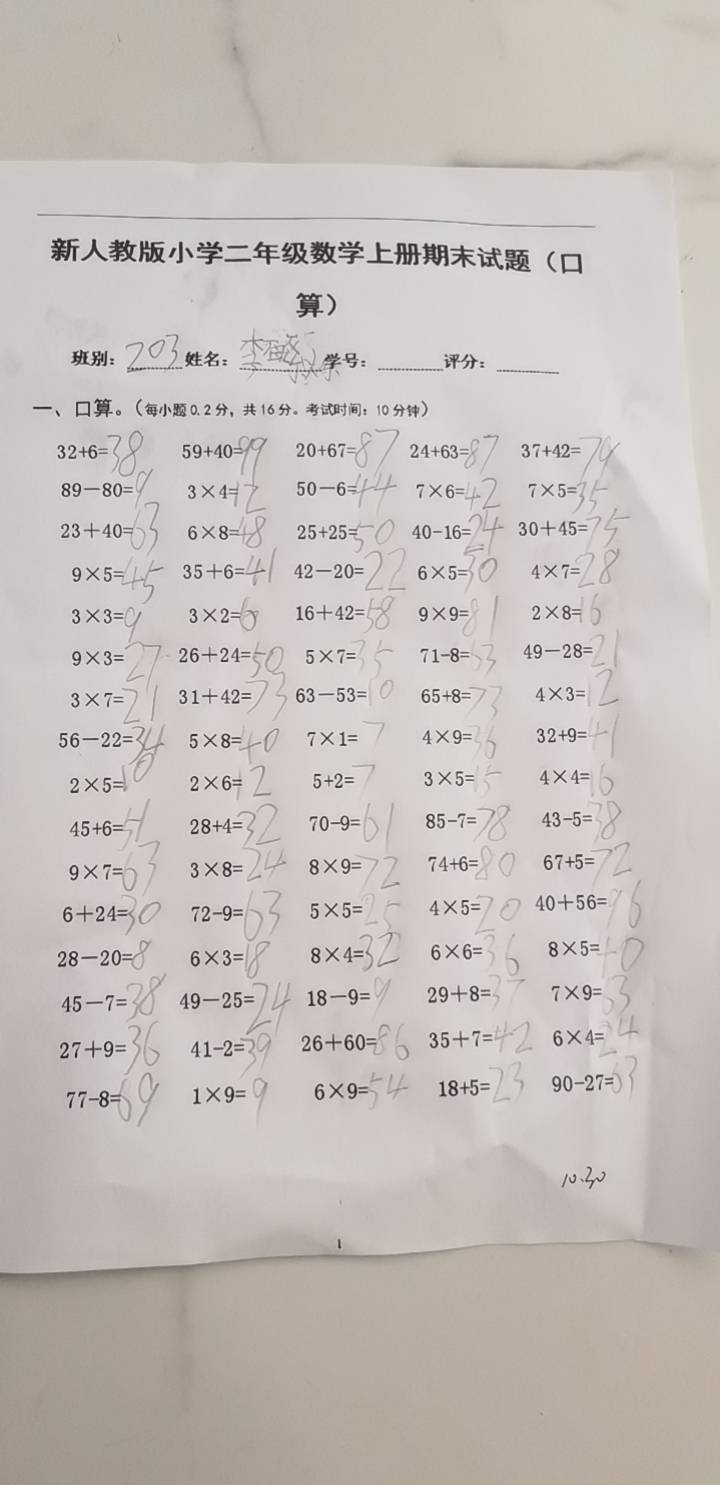 新人教版小学二年级数学上册期末试题（口
算）
班别：203 姓名：李 学号： 评分：
一、口算。（每小题0.2分，共16分。考试时间：10分钟）
32+6=38 59+40=99 20+67=87 24+63=87 37+42=79
89－80=9 3×4=12 50－6=44 7×6=42 7×5=35
23＋40=63 6×8=48 25+25=50 40-16=24 30＋45=75
9×5=45 35＋6=41 42－20=22 6×5=30 4×7=28
3×3=9 3×2=6 16＋42=58 9×9=81 2×8=16
9×3=27 26＋24=50 5×7=35 71-8=63 49－28=21
3×7=21 31＋42=73 63－53=10 65+8=73 4×3=12
56－22=34 5×8=40 7×1=7 4×9=36 32+9=41
2×5=10 2×6=12 5+2=7 3×5=15 4×4=16
45+6=51 28+4=32 70-9=61 85-7=78 43-5=38
9×7=63 3×8=24 8×9=72 74+6=80 67+5=72
6＋24=30 72-9=63 5×5=25 4×5=20 40＋56=96
28－20=8 6×3=18 8×4=32 6×6=36 8×5=40
45－7=38 49－25=24 18－9=9 29＋8=37 7×9=63
27＋9=36 41-2=39 26＋60=86 35＋7=42 6×4=24
77-8=69 1×9=9 6×9=54 18+5=23 90-27=63
10.30
1